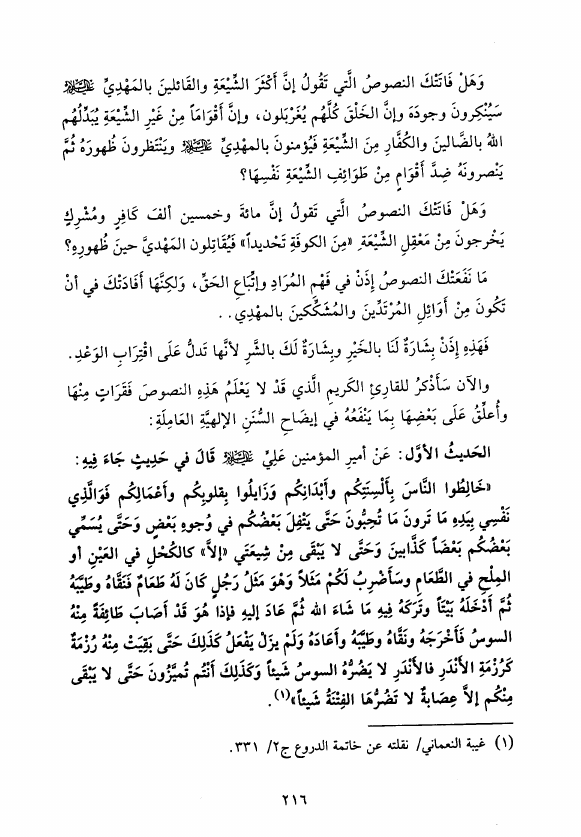 وَهَلْ فَاتَتْكَ النصوصُ الَّتي تَقُولُ إنَّ أَكْثَرَ الشِّيْعَةِ والقَائلينَ بالمَهْدِيِّ عليه السلام
سَيُنْكِرونَ وجودَهَ وإنَّ الخَلْقَ كُلَّهُم يُغَرْبَلون، وإنَّ أَقْوَامَاً مِنْ غَيْرِ الشِّيْعَةِ يُبَدِّلُهُم
اللهُ بالضَّالينَ والكُفَّارِ مِنَ الشِّيْعَةِ فَيُؤمنونَ بالمهْدِيِّ عليه السلام ويَنْتَظرونَ ظُهورَهُ ثُمَّ
يَنْصرونَهُ ضِدَّ أَقْوَامٍ مِنْ طَوَائِفِ الشِّيْعَةِ نَفْسِهَا؟
وَهَلْ فَاتَتْكَ النصوصُ الَّتي تَقولُ إنَّ مائةَ وخمسين ألفَ كَافِرٍ ومُشْرِكٍ
يَخْرجونَ مِنْ مَعْقِلِ الشِّيْعَةِ «مِنَ الكوفَةِ تَحْديداً» فَيُقَاتِلون المَهْديَّ حينَ ظُهورِهِ؟
مَا نَفَعَتْكَ النصوصُ إذَنْ في فَهْمِ المُرَادِ وإتِّبَاعِ الحَقِّ، وَلكِنَّهَا أَفَادَتْكَ في أنْ
تَكُونَ مِنْ أَوَائِلِ المُرْتَدِّينَ والمُشَكِّكينَ بالمهْدِي..
فَهَذِهِ إذَنْ بِشَارَةٌ لَنَا بالخَيْرِ وبِشَارَةٌ لَكَ بالشَّرِ لأنَّها تَدلُّ عَلَى اقْتِرَابِ الوَعْدِ.
والآن سَأَذْكرُ للقارِئِ الكَريمِ الَّذي قَدْ لا يَعْلَمُ هَذِهِ النصوصَ فَقَرَاتٍ مِنْهَا
وأُعلِّقُ عَلَى بَعْضِهَا بِمَا يَنْفَعُهُ في إيضَاحِ السُّنَنِ الإلهيَّةِ العَامِلَةِ:
الحَديثُ الأوَّل: عَنْ أميرِ المؤمنين عَليِّ عليه السلام قَالَ في حَديثٍ جَاءَ فِيهِ:
«خَالِطُوا النَّاسَ بِأَلْسِنَتِكُم وأَبْدَانِكُم وَزَايلُوا بِقلوبِكُم وأَعْمَالِكُم فَوَالَّذي
نَفْسي بِيَدِهِ مَا تَرونَ مَا تُحِبُّونَ حَتَّى يَتْفِلَ بَعْضُكُم في وُجوهِ بَعْضٍ وَحَتَّى يُسَمِّي
بَعْضُكُم بَعْضَاً كَذَّابينَ وَحَتَّى لا يَبْقَى مِنْ شِيعَتي «إلاَّ» كالكُحْلِ في العَيْنِ أو
المِلْحِ في الطَّعَامِ وسَأَضْرِبُ لَكُمْ مَثَلاً وَهوَ مَثَلُ رَجُلٍ كَانَ لَهُ طَعَامٌ فَنَقَّاهُ وطَيَّبَهُ
ثُمَّ أَدْخَلَهُ بَيْتَاً وتَرَكَهُ فِيهِ مَا شَاءَ الله ثُمَّ عَادَ إليهِ فإذا هُوَ قَدْ أَصَابَ طَائِفَةً مِنْهُ
السوسُ فَأَخْرجَهُ ونَقَّاهُ وطَيَّبَهُ وأَعَادَهُ وَلَمْ يزلْ يَفْعَلُ كَذلِكَ حَتَّى بَقِيَتْ مِنْهُ رُزْمَةٌ
كَرُزْمَةِ الأَنْدَرِ فالأَنْدَرِ لا يَضُرُّهُ السوسُ شَيئاً وَكَذلِكَ أَنْتُم تُميَّزُونَ حَتَّى لا يَبْقَى
مِنْكُم إلاَّ عِصَابةٌ لا تَضُرُّهَا الفِتْنَةُ شَيئاً»(١).
(١) غيبة النعماني/ نقلته عن خاتمة الدروع ج٢/ ٣٣١.
٢١٦